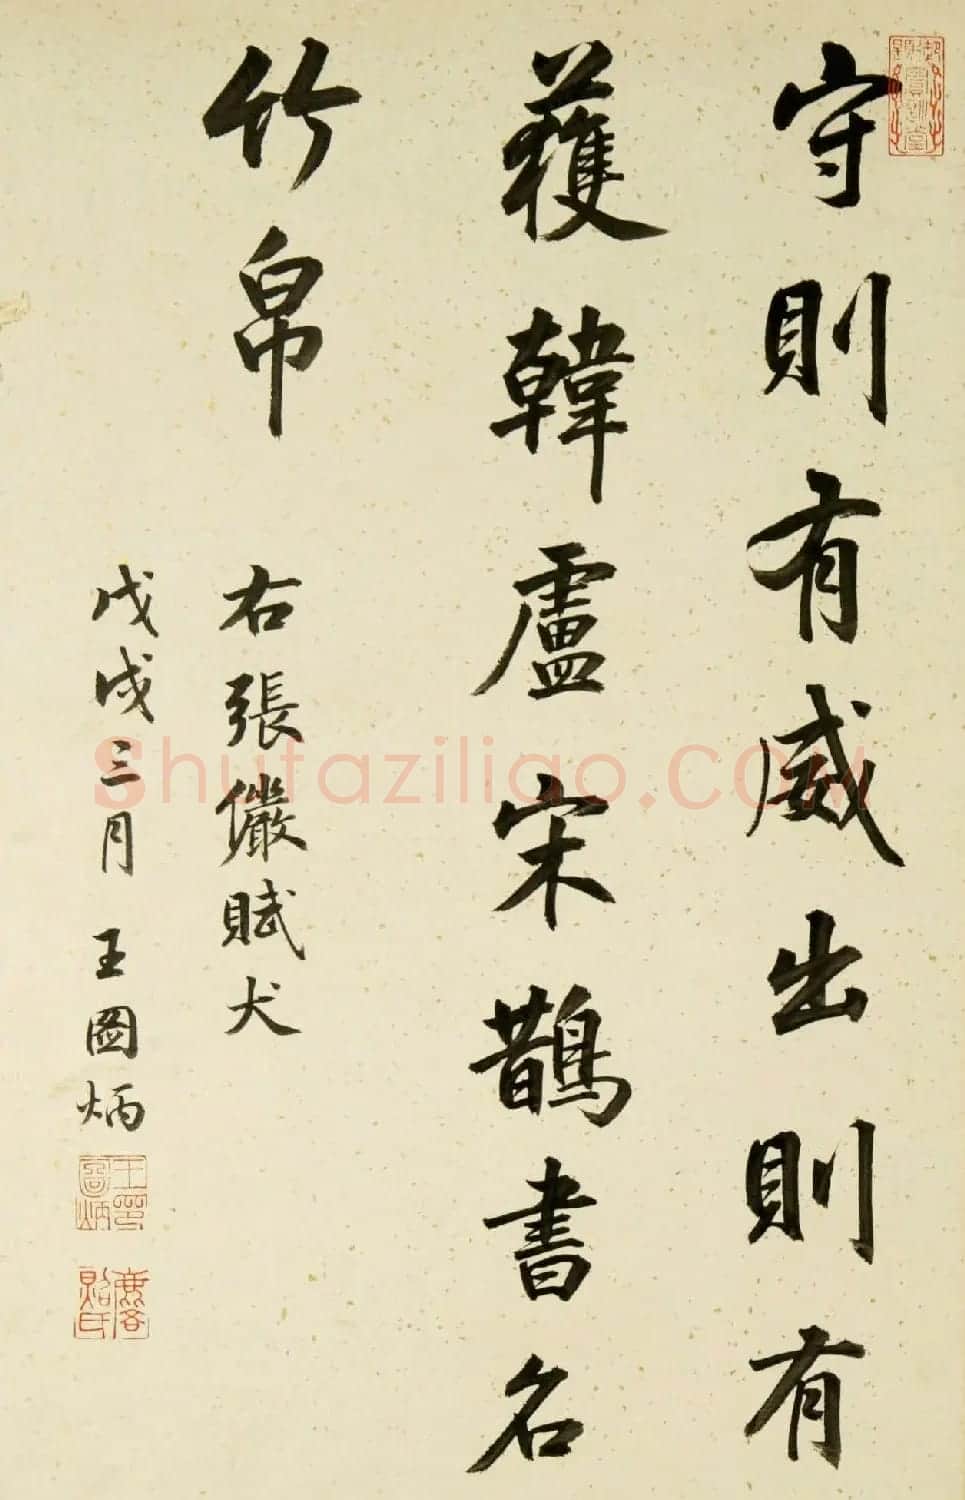 守則有威出則有
獲韓盧宋鵲書名
竹帛
右張儼賦犬
戊戌三月 王圖炳
王圖炳印
Shufaziliao.COM